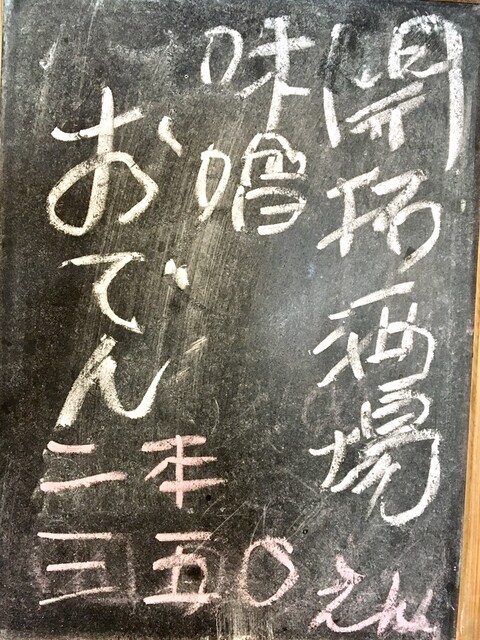 開拓酒場
味噌
おでん
二本
三五〇えん